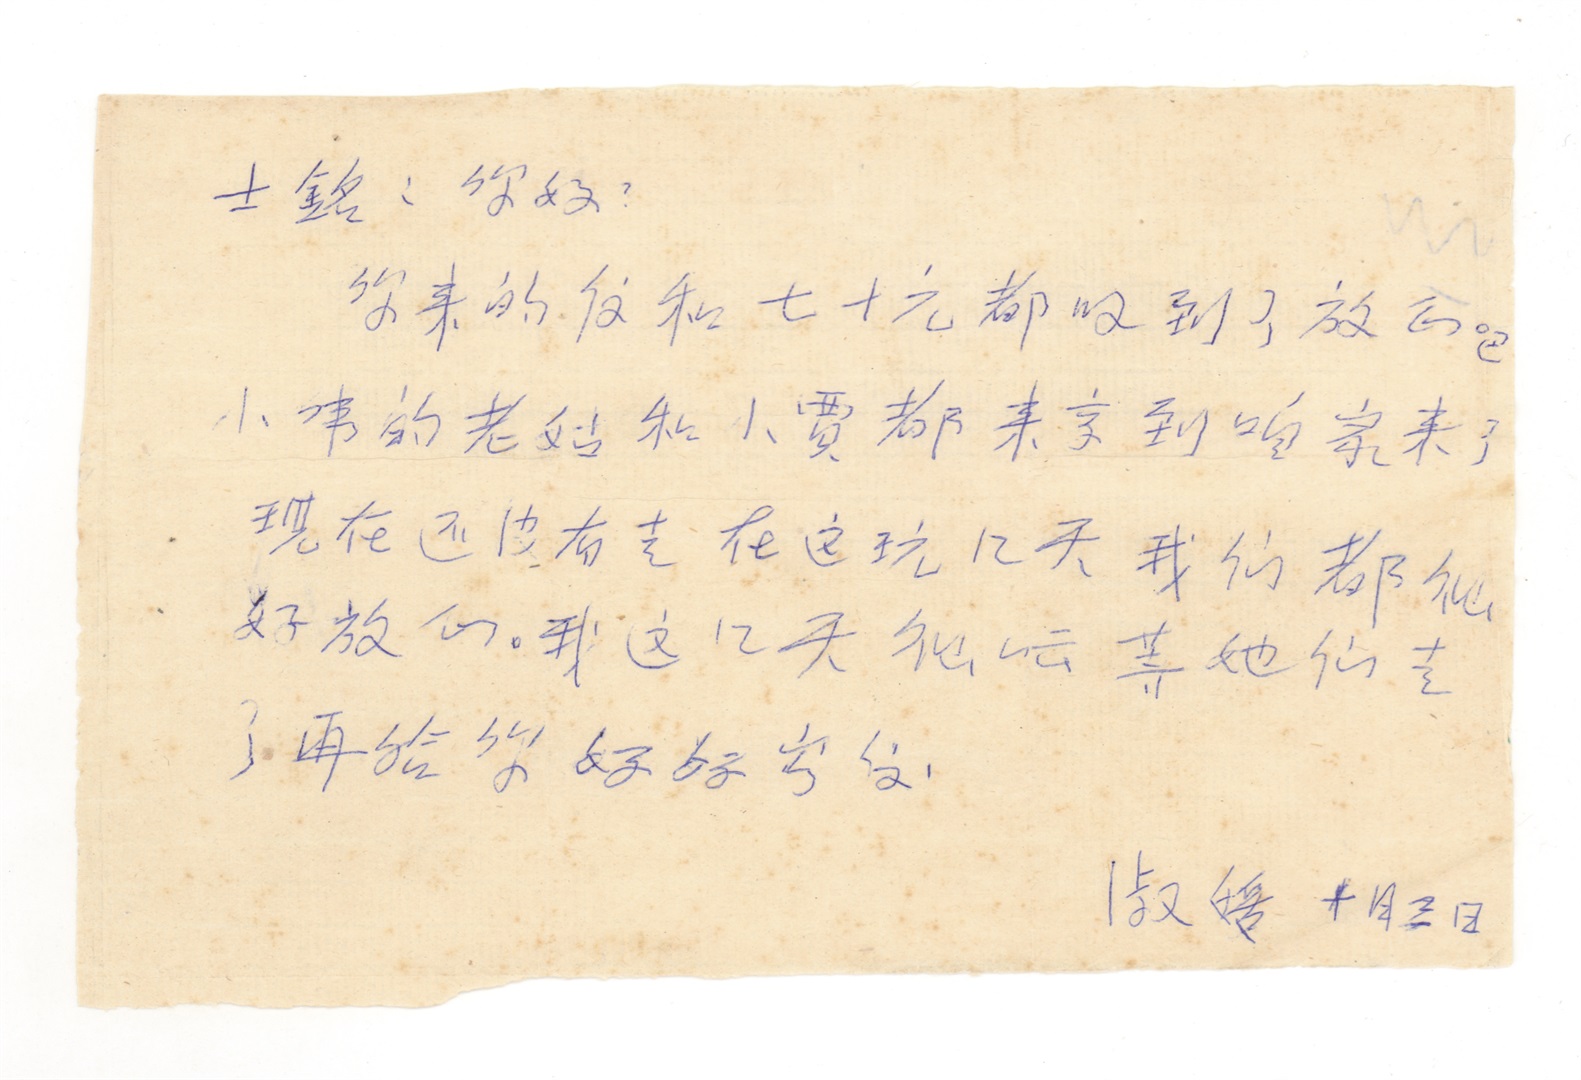 士銘：你好？
你来的信和七十元都收到了放心吧
小伟的老姑和小賈都来京到咱家来了
現在还没有走在这玩几天我们都很
好放心。我这几天很忙等她们走
了再给你好好写信.
淑媛 十月三日